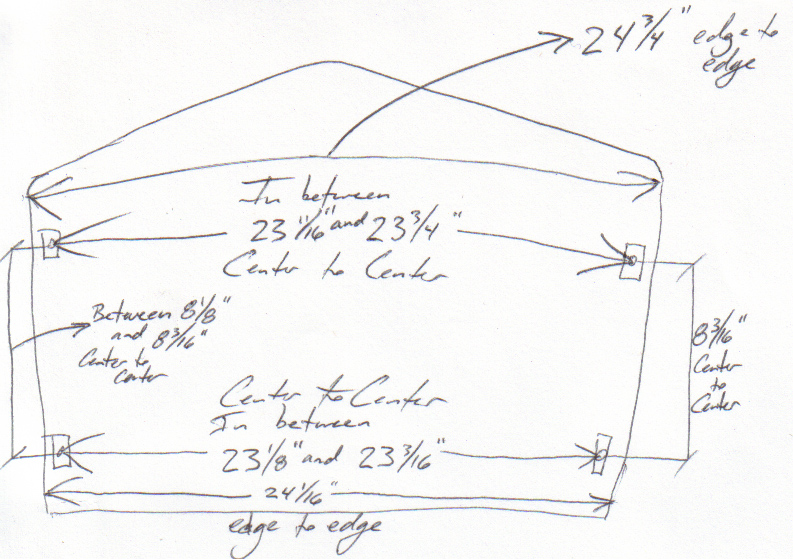 24 3/4" edge to
edge
In between
23 11/16" and 23 3/4"
Center to Center
Between 8 1/8"
and 8 3/16"
Center to
Center
8 3/16"
Center
to
Center
Center to Center
In between
23 1/8" and 23 3/16"
24 1/16"
edge to edge